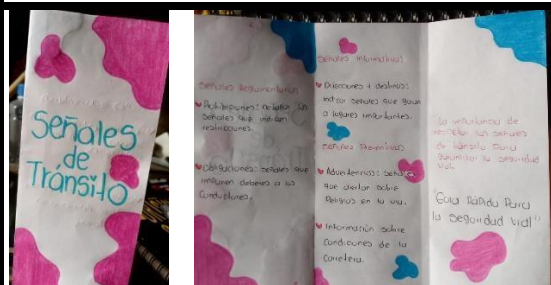 Señales
de
Tránsito
Señales Reglamentarias
Prohibiciones: señales
señales que indican
restricciones.
Obligaciones: señales que
imponen deberes a los
conductores.
Señales Informativas
Direcciones y destinos:
indican señales que guian
a lugares importantes.
Señales Preventivas
Advertencias: señales
que alertan sobre
Peligros en la via.
Información sobre
Condiciones de la
Carretera.
La importancia de
respetar las señales
de tránsito para
garantizar la seguridad
vial.
"Guia Rápida Para
la Seguridad Vial"